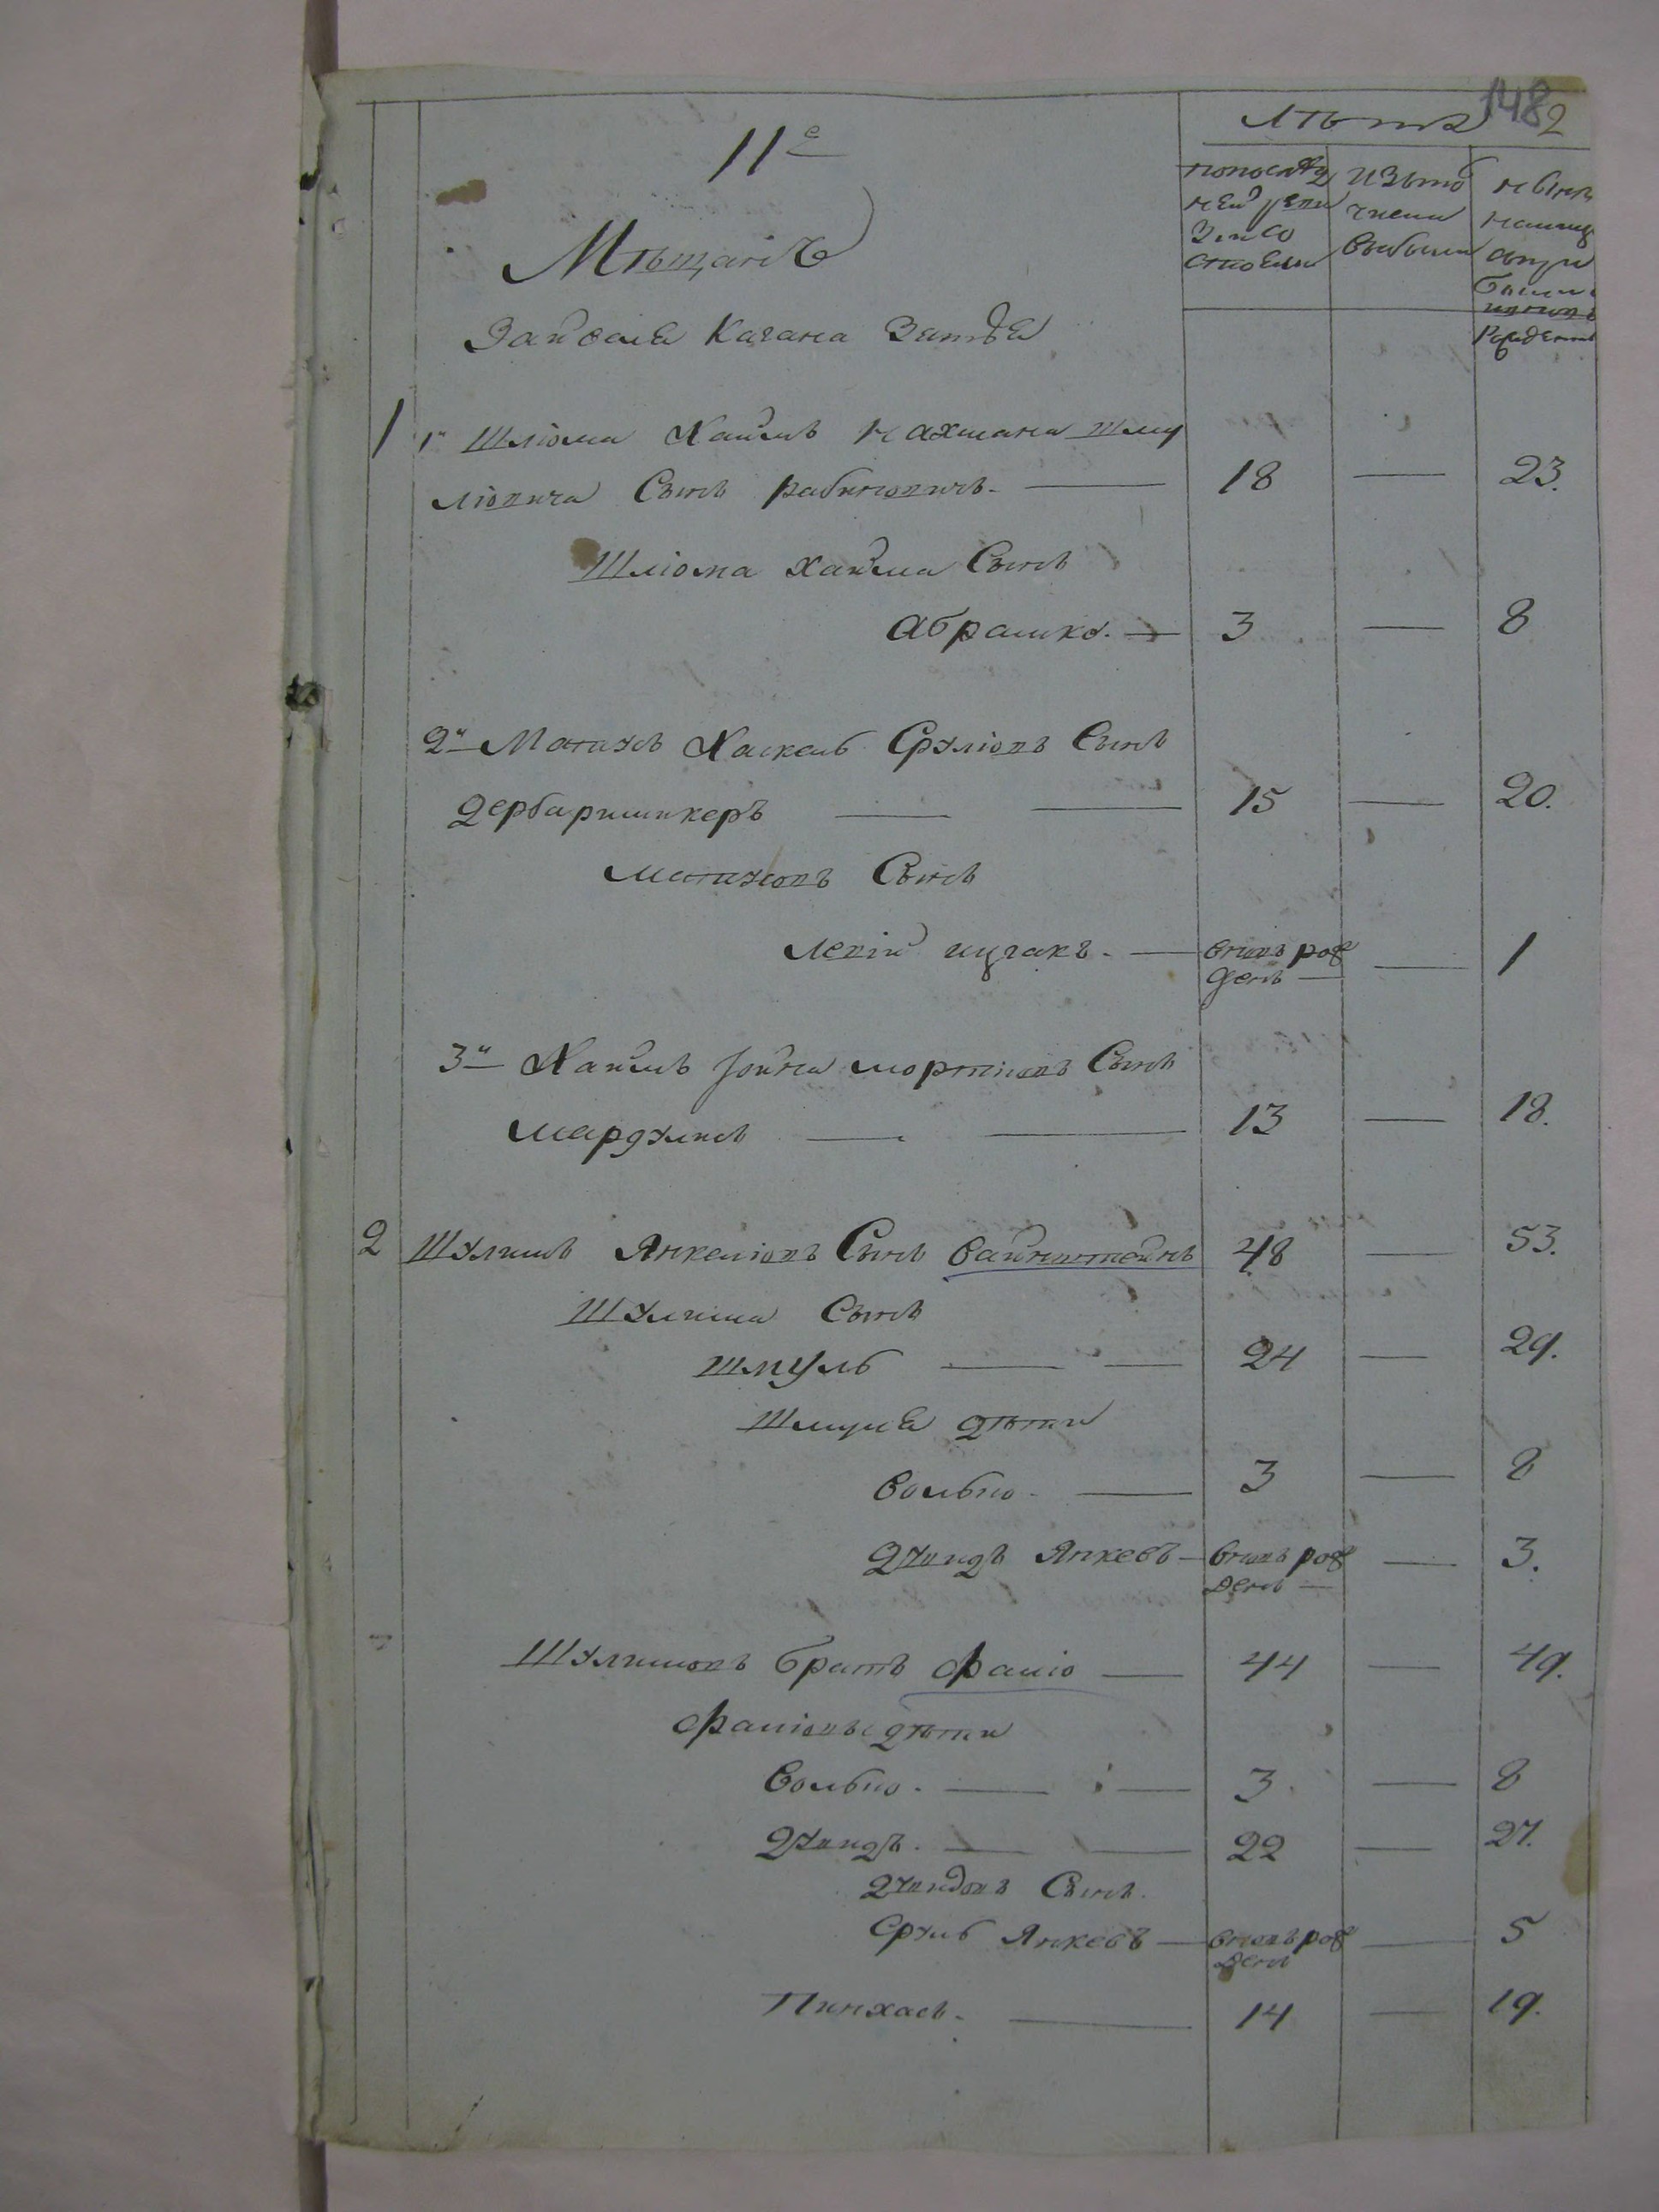 148 2
11е
Лѣта
Мѣщане
Зайвеля Кагана Зятья
по послѣд
ней реви
зіи со
стояли
изъ то
числа
выбыли
нынѣ
на лиц
1 1й Шліома Хаимъ Нахмана Шму
ліовича Сынъ Рабиновичъ. — 18 — 23.
Шліома Хаима Сынъ
Абрашко. — 3 — 8
2й Манусъ Хаскель Сруліовъ Сынъ
— 15 — 20.
Манусовъ Сынъ
Левій Ицгакъ. — вновь рож
денъ — — 1
3й Хаимъ Іойна Мортковъ Сынъ
— 13 — 18.
2 Шулимъ Янкеліовъ Сынъ Вайнштейнъ 48 — 53.
Шулима Сынъ
Шмуль — — 24 — 29.
Шмуля дѣти
Волько. — 3 — 8
Дувидъ Янкевъ — вновь рож
денъ — — 3.
Шулимовъ братъ Фалю — 44 — 49.
Фаліовы дѣти
Волько. — — 3 — 8
Дувидъ. — — 22 — 27.
Дувидовъ Сынъ
Сруль Янкевъ — вновь рож
денъ — 5
Пинхасъ. — 14 — 19.